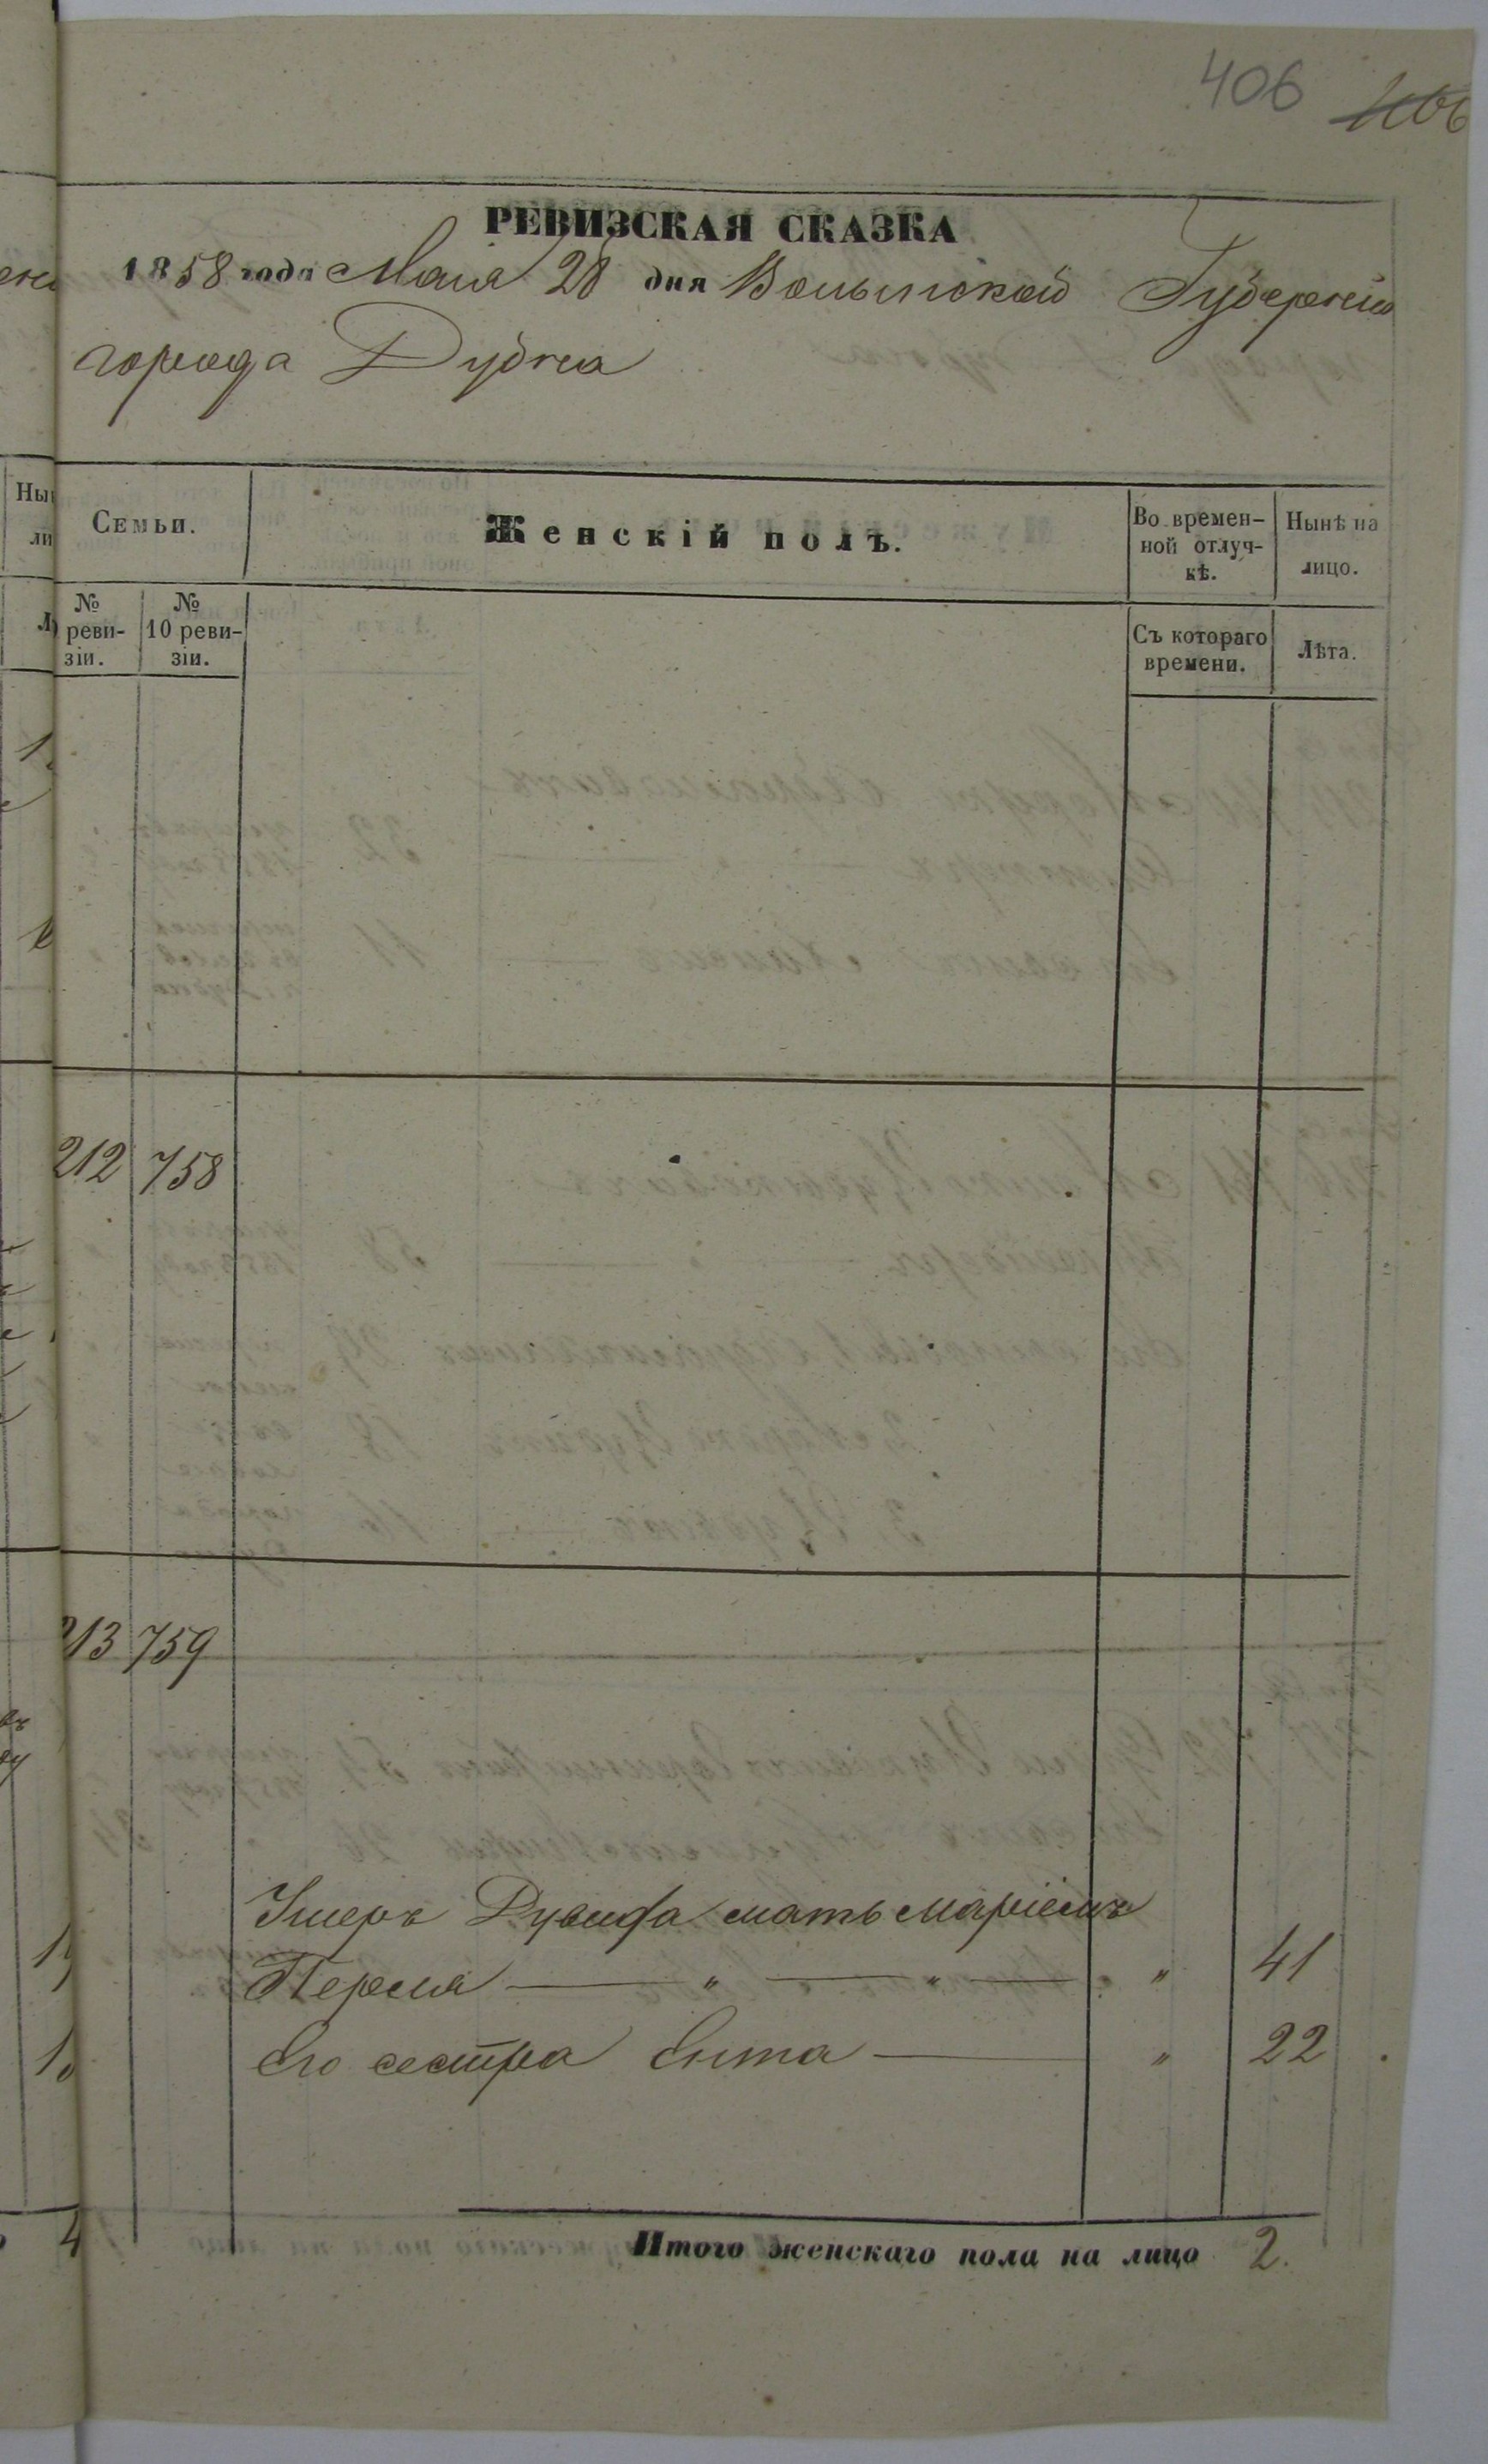 406
РЕВИЗСКАЯ СКАЗКА
1858 года Мая 28 дня Волынской Губернии
города Дубна
Семьи.
Женскій полъ.
Во времен-
ной отлуч-
кѣ.
Нынѣ на
лицо.
№
реви-
зіи.
№
10 реви-
зіи.
Съ котораго
времени.
Лѣта.
212 758
213 759
мать Маріемъ
Перля — " — " — " 41
Его сестра Ента — " 22
Итого женскаго пола на лицо 2.